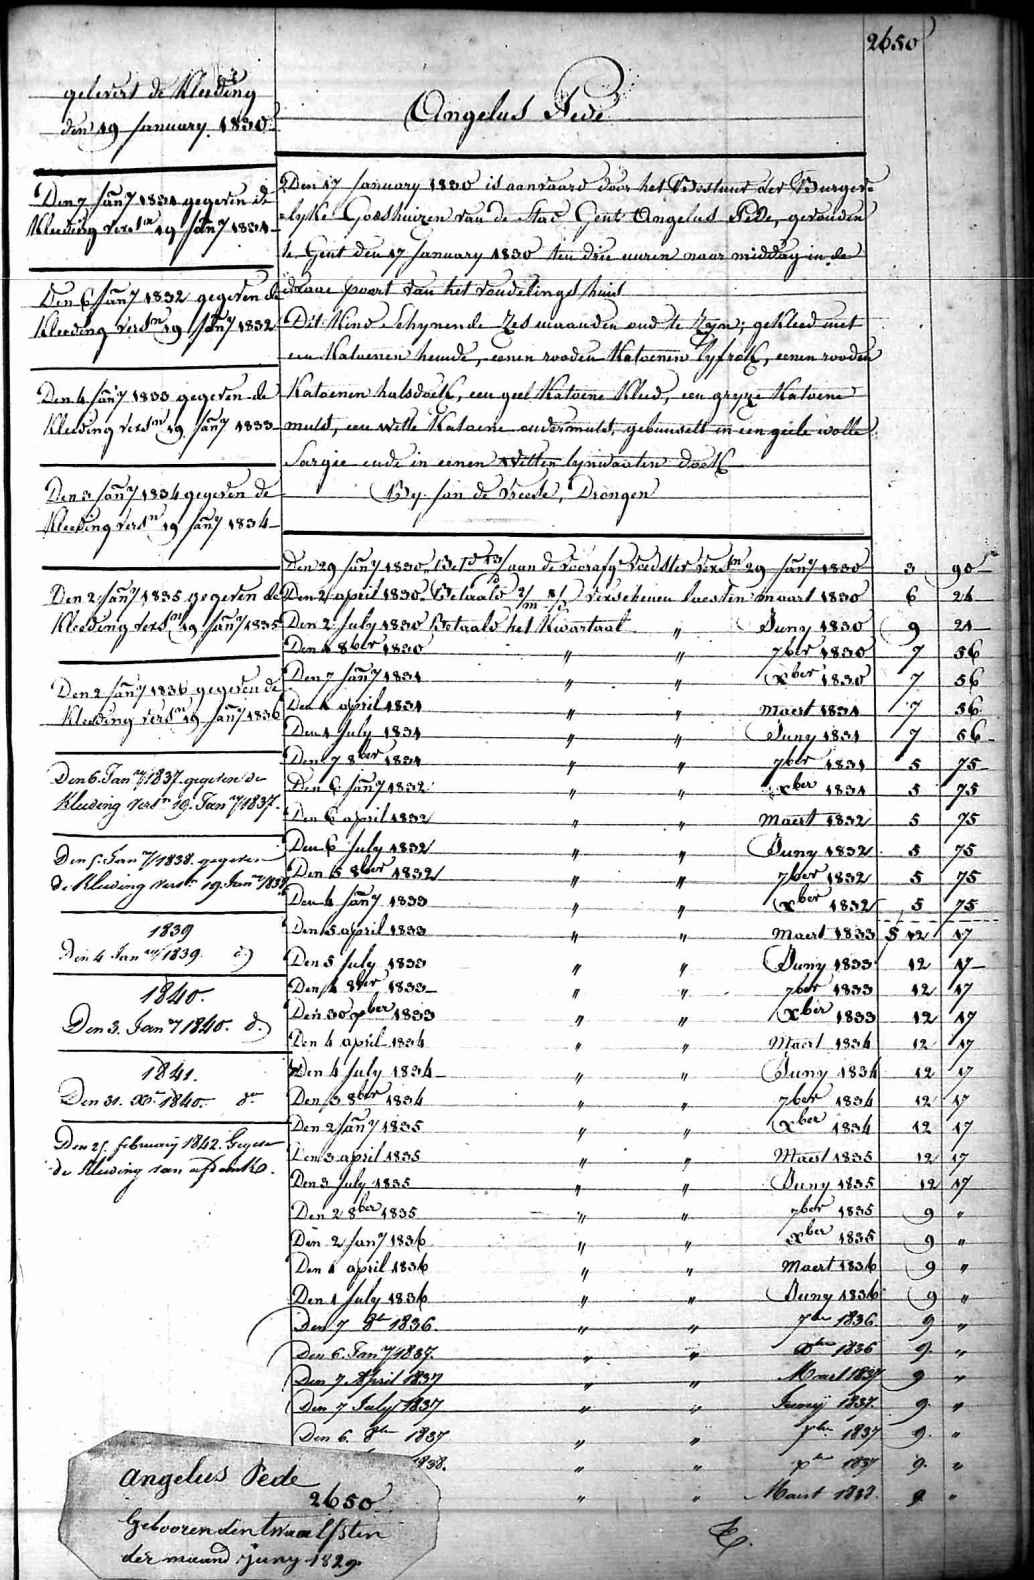 2650
gelevert de Kleeding
den 19 January 1830
Angelus Pede
Den 7 Janry 1831 gegeven de
Kleeding versn 19 Janry 1831
Den 6 Janry 1832 gegeven de
Kleeding versn 19 Janry 1832
Den 4 Janry 1833 gegeven de
Kleeding versn 19 Janry 1833
Den 3 Janry 1834 gegeven de
Kleeding versn 19 Janry 1834
Den 2 Janry 1835 gegeven de
Kleeding versn 19 Janry 1835
Den 2 Janry 1836 gegeven de
Kleeding versn 19 Janry 1836
Den 6 Janry 1837 gegeven de
Kleeding versn 19 Janry 1837
Den 5 Janry 1838 gegeven
de Kleeding versn 19 Janry 1838
1839
Den 4 Janry 1839 d.)
1840.
Den 3. Janry 1840. d.)
1841.
Den 31. Xr 1840. do
Den 25 february 1842. Gegeven
de Kleeding van
Den 17 January 1830 is aanvaard door het Bestuur der Burger-
lyke Godshuizen van de Stad Gent Angelus Pede, gevonden
te Gent den 17 January 1830 ten drie uuren naar middag in de
draae poort van het vondelings huis
Dit Kind Schynende Zes maanden oud te Zyn; gekleed met
een Katoenen hemde, eenen rooden Katoenen Lyfrok, eenen rooden
Katoenen halsdoek, een geel Katoene Kleed, een gryze Katoene
muts, een witte Katoene ondermuts, gebunselt in een geele wolle
Sargie ende in eenen witten lynwaeten doek
By Jan de Vreese, Drongen
Den 29 Janry 1830 aan de voorafg Voedster versn 29 Janry 1830 3 90
Den 2 april 1830 Betaald verschenen laesten maart 1830 6 24
Den 2 July 1830 Betaald het Kwartaal " Juny 1830 9 21
Den 1 8ber 1830 " " 7ber 1830 7 56
Den 7 Janry 1831 " " Xber 1830 7 56
Den 1 april 1831 " " Maert 1831 7 56
Den 1 July 1831 " " Juny 1831 7 56
Den 7 8ber 1831 " " 7ber 1831 5 75
Den 6 Janry 1832 " " Xber 1831 5 75
Den 6 april 1832 " " Maert 1832 5 75
Den 6 July 1832 " " Juny 1832 5 75
Den 5 8ber 1832 " " 7ber 1832 5 75
Den 4 Janry 1833 " " Xber 1832 5 75
Den 5 april 1833 " " Maert 1833 12 17
Den 5 July 1833 " " Juny 1833 12 17
Den 4 8ber 1833 " " 7ber 1833 12 17
Den 30 Xber 1833 " " Xber 1833 12 17
Den 4 april 1834 " " Maert 1834 12 17
Den 4 July 1834 " " Juny 1834 12 17
Den 3 8ber 1834 " " 7ber 1834 12 17
Den 2 Janry 1835 " " Xber 1834 12 17
Den 3 april 1835 " " Maert 1835 12 17
Den 3 July 1835 " " Juny 1835 12 17
Den 2 8ber 1835 " " 7ber 1835 9 "
Den 2 Janry 1836 " " Xber 1835 9 "
Den 1 april 1836 " " Maert 1836 9 "
Den 1 July 1836 " " Juny 1836 9 "
Den 7 8br 1836. " " 7ber 1836 9 "
Den 6 Janry 1837. " " Xber 1836 9 "
Den 7 April 1837 " " Maert 1837 9 "
Den 7 July 1837 " " Juny 1837. 9 "
Den 6. 8br 1837 " " 7ber 1837 9 "
1838. " " Xber 1837 9 "
" " Maert 1838. 9 "
Angelus Pede
2650
Gebooren den twaalfsten
der maand Juny 1829